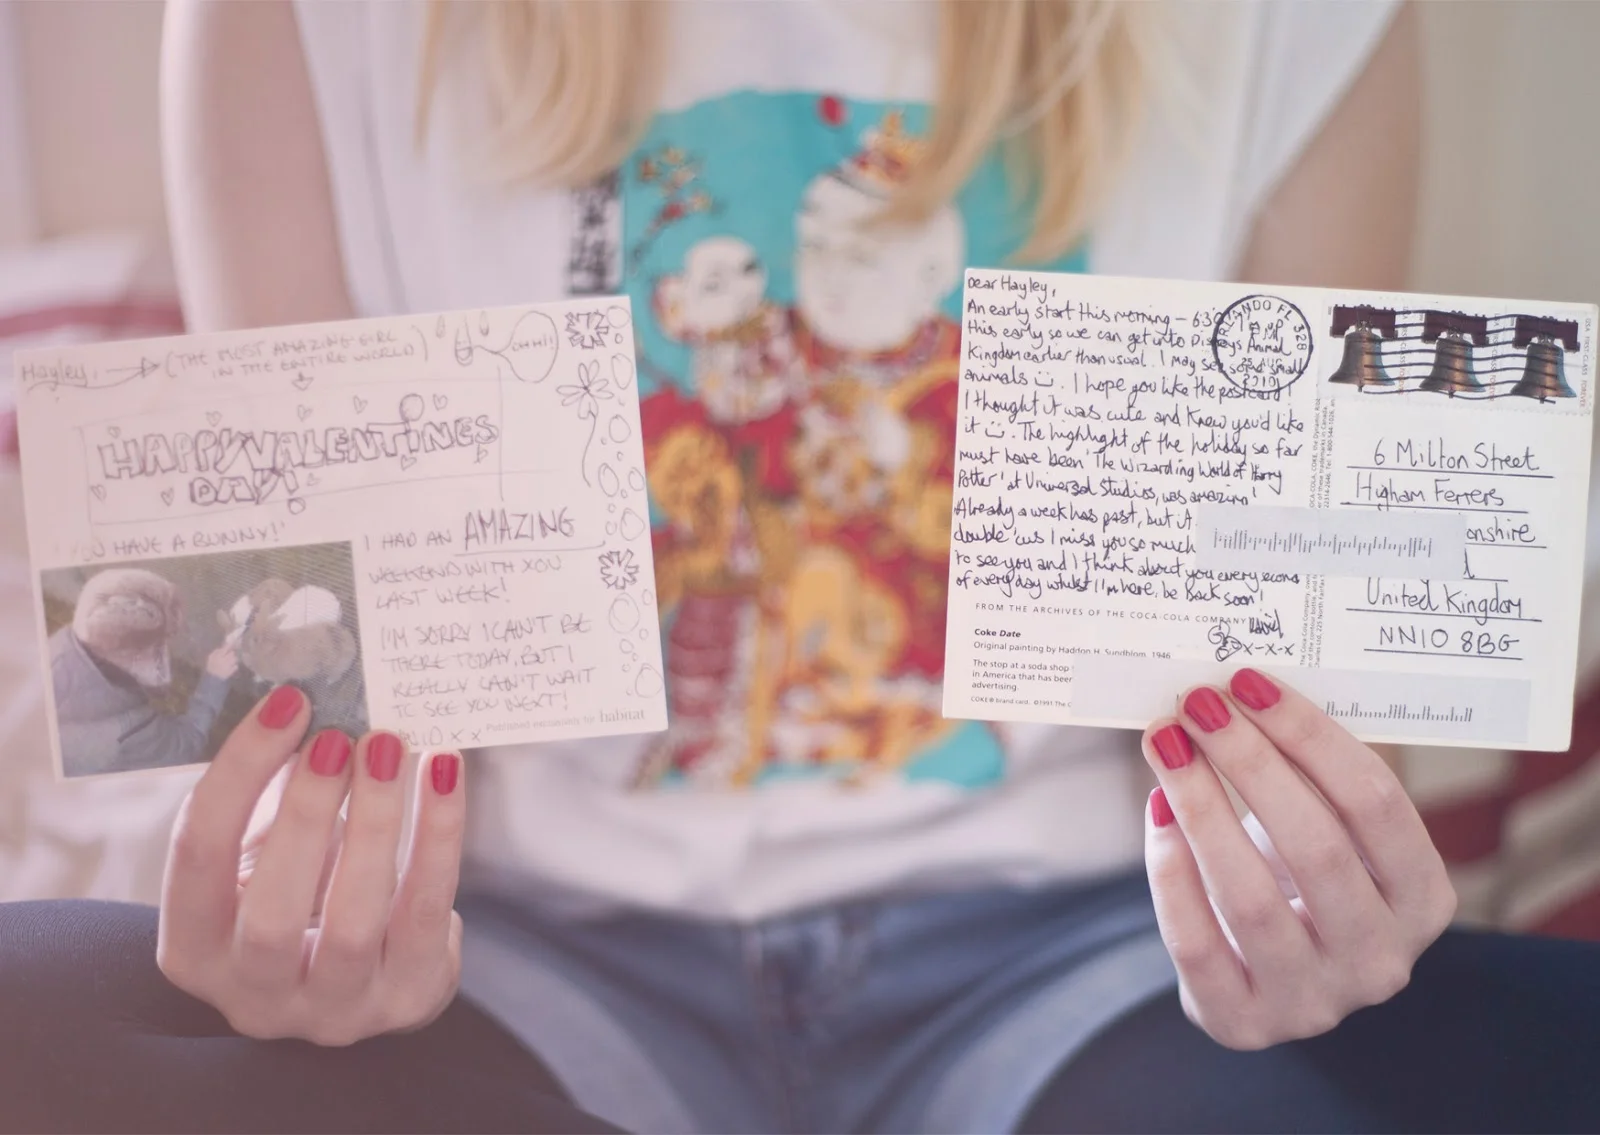 Hayley,
(THE MOST AMAZING GIRL
IN THE ENTIRE WORLD)
OHHI!
HAPPY VALENTINES
DAY!
HAVE A BUNNY!
I HAD AN AMAZING
WEEKEND WITH YOU
LAST WEEK!
I'M SORRY I CAN'T BE
THERE TODAY, BUT I
REALLY CAN'T WAIT
TO SEE YOU NEXT!
x x
Published exclusively for habitat
Dear Hayley,
An early start this morning – 6:30
this early so we can get into Disneys Animal
Kingdom earlier than usual. I may see some small
animals :). I hope you like the postcard!
I thought it was cute and knew you'd like
it :). The highlight of the holiday so far
must have been 'The Wizarding World of Harry
Potter' at Universal Studios, was amazing!
Already a week has past, but it
double 'cus I miss you so much
to see you and I think about you every second
of every day whilst I'm here, be back soon!
Daniel
x-x-x
FROM THE ARCHIVES OF THE COCA-COLA COMPANY
Coke Date
Original painting by Haddon H. Sundblom, 1946
The stop at a soda shop
in America that has been
advertising.
COKE® brand card. ©1991 The C
ORLANDO FL 328
25 AUG
2010
USA FIRST-CLASS FOREVER
6 Milton Street
Higham Ferrers
onshire
United Kingdom
NN10 8BG